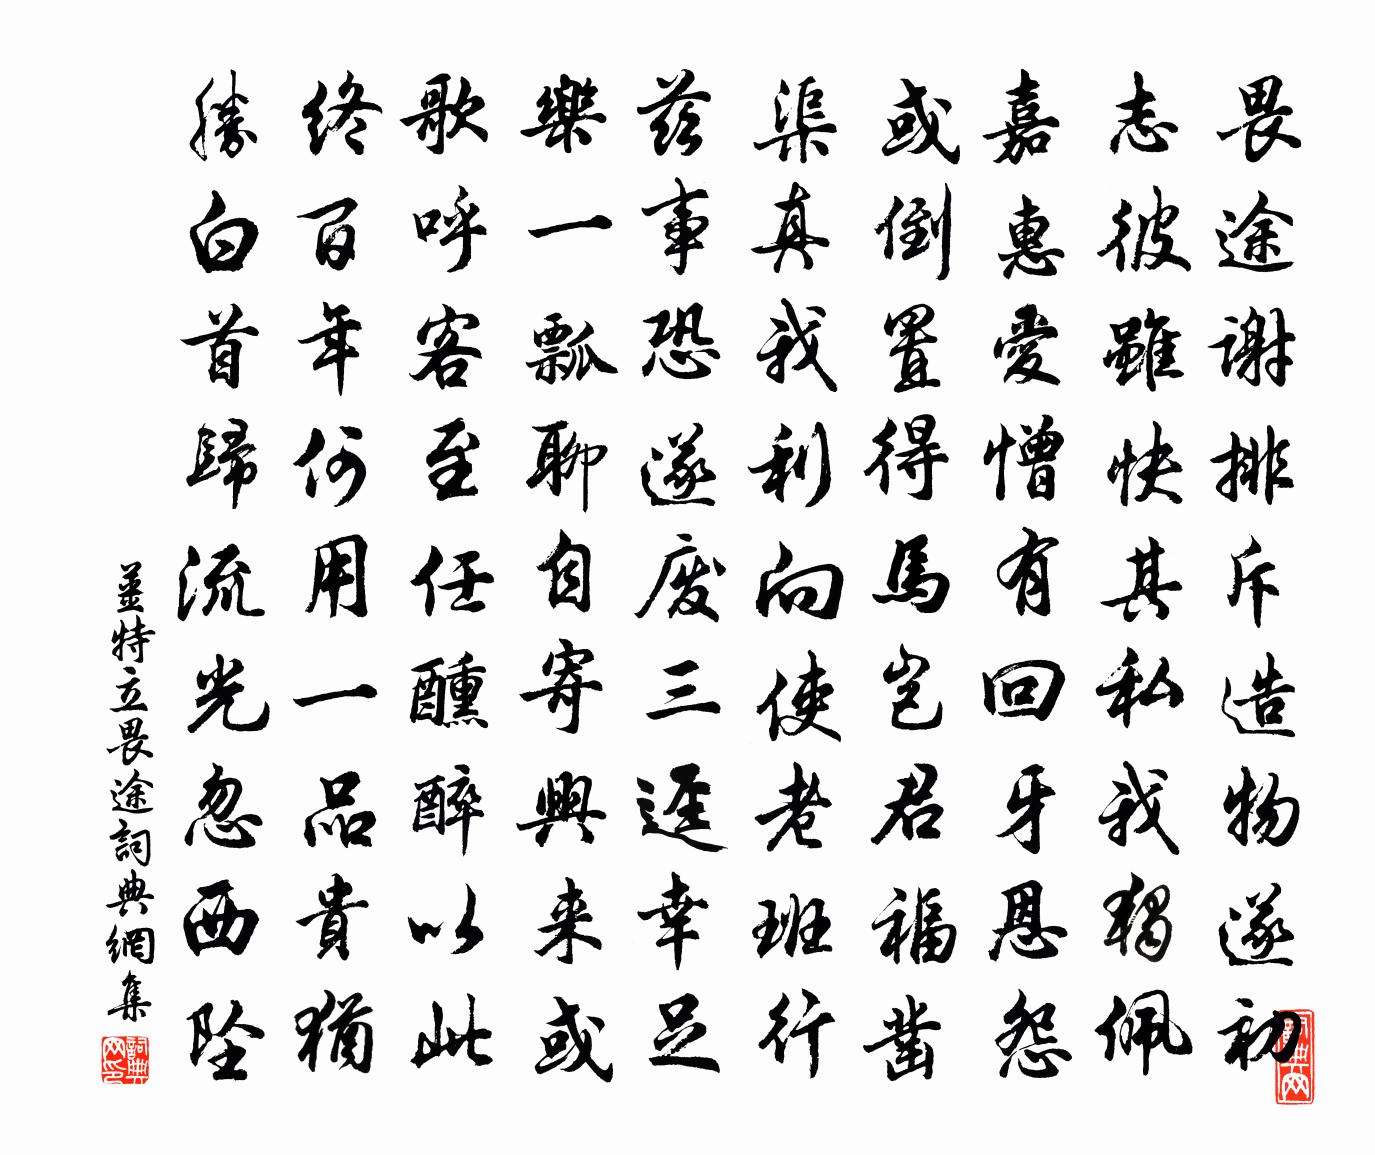 畏途謝排斥造物遂初
志彼雖快其私我獨佩
嘉惠愛憎有回牙恩怨
或倒置得馬豈君福凿
渠真我利向使老班行
茲事恐遂废三逕幸足
樂一瓢聊自寄興来或
歌呼客至任醺醉以此
終百年何用一品貴猶
勝白首歸流光忽西坠
薑特立畏途詞典網集
詞典网印
詞典网